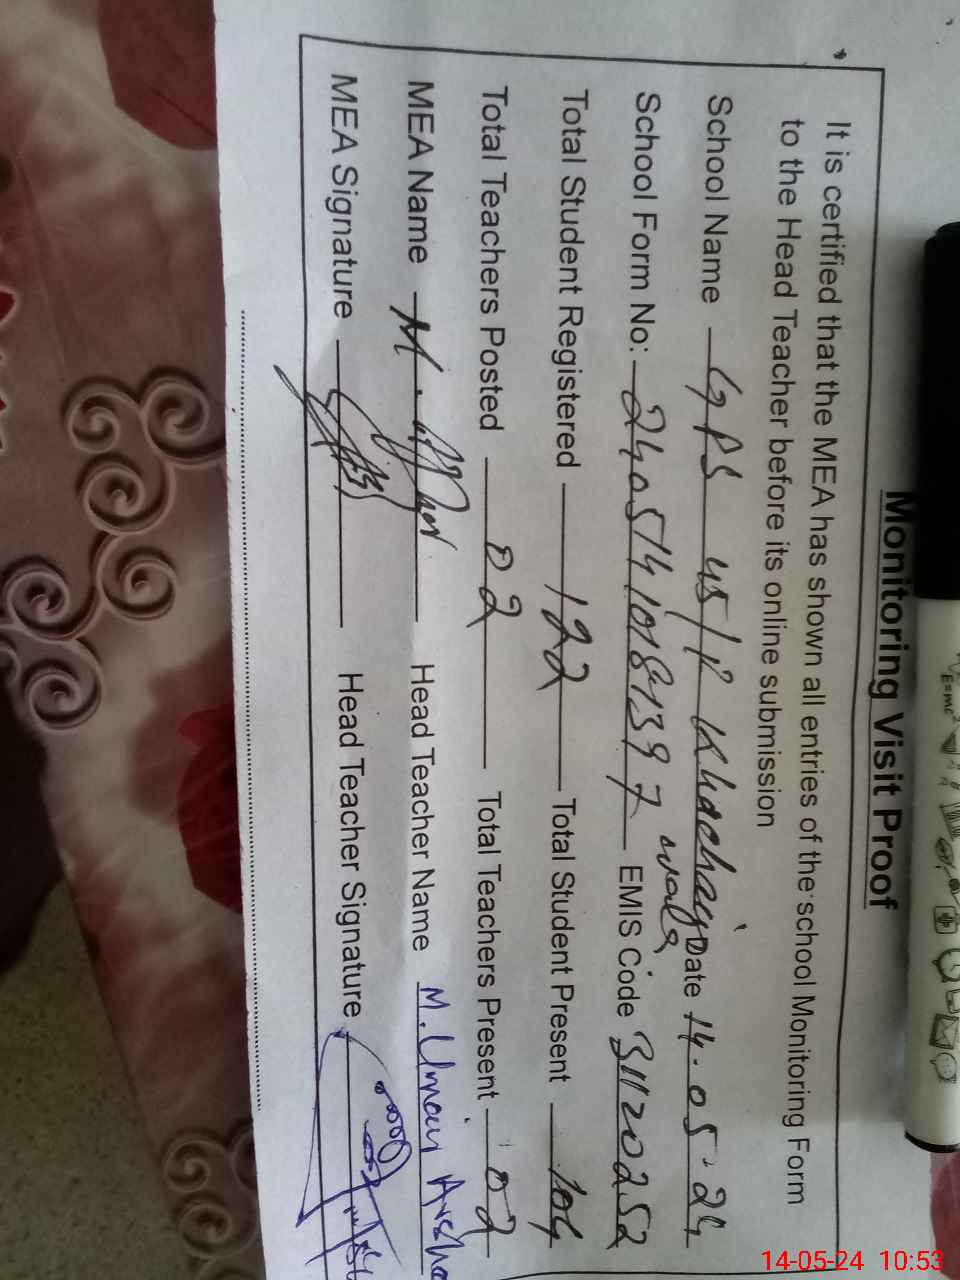 Monitoring Visit Proof
It is certified that the MEA has shown all entries of the school Monitoring Form
to the Head Teacher before its online submission
School Name GPS 45/P Khachay wala Date 14.05.24
School Form No: 24051410181397 EMIS Code 31120252
Total Student Registered 122 Total Student Present 104
Total Teachers Posted 02 Total Teachers Present 02
MEA Name M. Head Teacher Name M. Umair
MEA Signature Head Teacher Signature
E=mc²
14-05-24 10:53